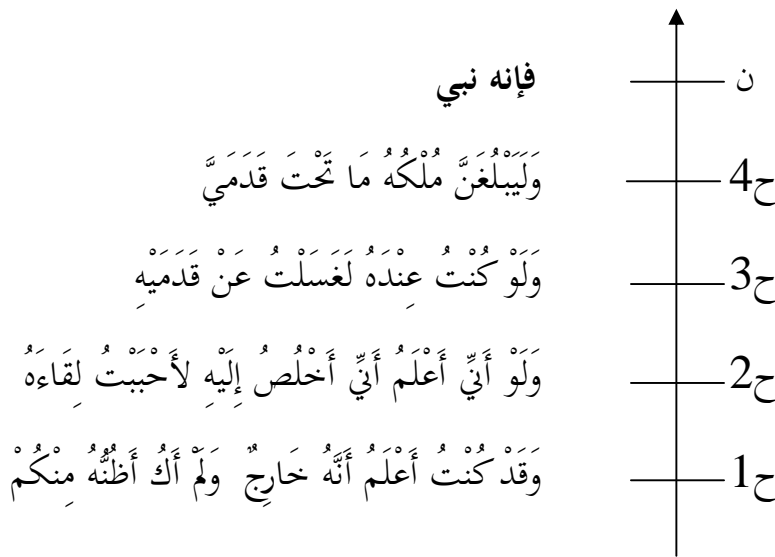 ن فإنه نبي
ح4 وَلَيَبْلُغَنَّ مُلْكُهُ مَا تَحْتَ قَدَمَيَّ
ح3 وَلَوْ كُنْتُ عِنْدَهُ لَغَسَلْتُ عَنْ قَدَمَيْهِ
ح2 وَلَوْ أَنِّي أَعْلَمُ أَنِّي أَخْلُصُ إِلَيْهِ لأَحْبَبْتُ لِقَاءَهُ
ح1 وَقَدْ كُنْتُ أَعْلَمُ أَنَّهُ خَارِجٌ وَلَمْ أَكُ أَظُنُّهُ مِنْكُمْ